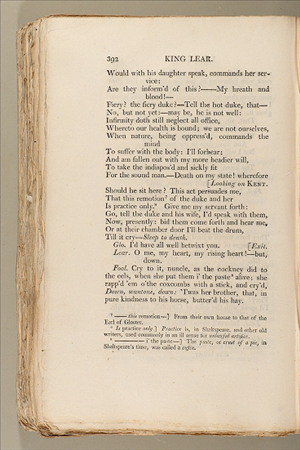 392 KING LEAR.
Would with his daughter speak, commands her ser-
vice:
Are they inform'd of this?——My breath and
blood!—
Fiery? the fiery duke?—Tell the hot duke, that—
No, but not yet:—may be, he is not well:
Infirmity doth still neglect all office,
Whereto our health is bound; we are not ourselves,
When nature, being oppress'd, commands the
mind
To suffer with the body: I'll forbear;
And am fallen out with my more headier will,
To take the indispos'd and sickly fit
For the sound man.—Death on my state! wherefore
[Looking on KENT.
Should he sit here? This act persuades me,
That this remotion of the duke and her
Is practice only. Give me my servant forth:
Go, tell the duke and his wife, I'd speak with them,
Now, presently: bid them come forth and hear me,
Or at their chamber door I'll beat the drum,
Till it cry—Sleep to death.
Glo. I'd have all well betwixt you. [Exit.
Lear. O me, my heart, my rising heart!—but,
down.
Fool. Cry to it, nuncle, as the cockney did to
the eels, when she put them i' the paste alive; she
rapp'd 'em o'the coxcombs with a stick, and cry'd,
Down, wantons, down: 'Twas her brother, that, in
pure kindness to his horse, butter'd his hay.
—— this remotion—] From their own house to that of the
Earl of Gloster.
Is practice only.] Practice is, in Shakspeare, and other old
writers, used commonly in an ill sense for unlawful artifice.
—— i' the paste—] The paste, or crust of a pie, in
Shakspeare's time, was called a coffin.